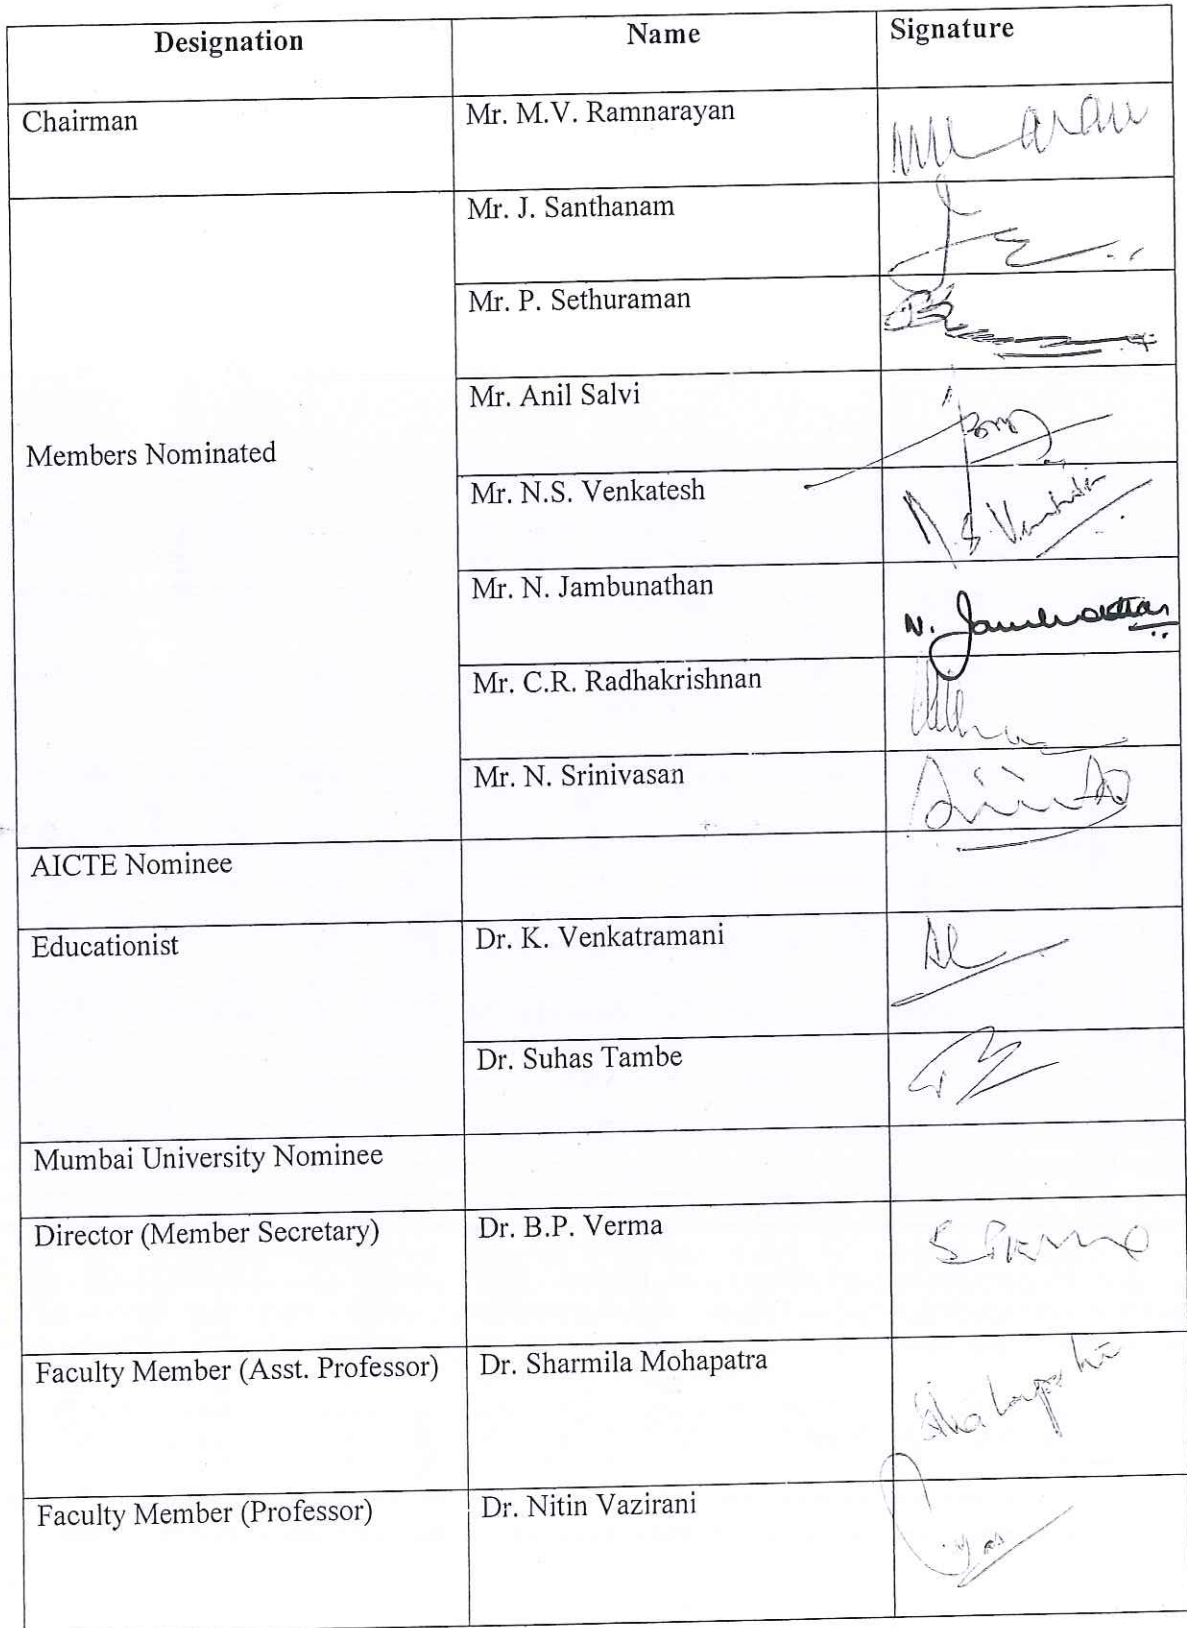 Designation Name Signature
Chairman Mr. M.V. Ramnarayan
Mr. J. Santhanam
Mr. P. Sethuraman
Mr. Anil Salvi
Members Nominated
Mr. N.S. Venkatesh
Mr. N. Jambunathan N. Jambunathan
Mr. C.R. Radhakrishnan
Mr. N. Srinivasan
AICTE Nominee
Educationist Dr. K. Venkatramani
Dr. Suhas Tambe
Mumbai University Nominee
Director (Member Secretary) Dr. B.P. Verma
Faculty Member (Asst. Professor) Dr. Sharmila Mohapatra
Faculty Member (Professor) Dr. Nitin Vazirani